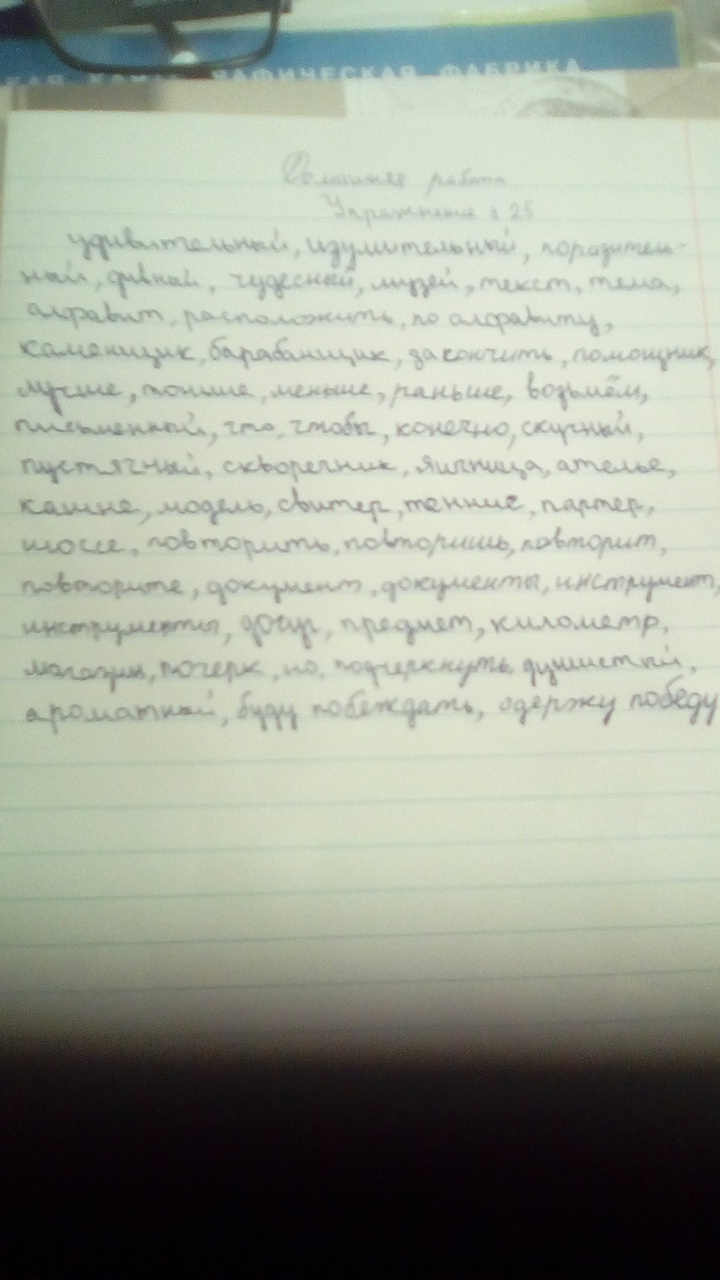 КАЯ ГРАФИЧЕСКАЯ ФАБРИКА
Домашняя работа
Упражнение 25
удивительный, изумительный, поразитель-
ный, дивный, чудесный, музей, текст, тема,
алфавит, расположить, по алфавиту,
каменщик, барабанщик, закончить, помощник,
лучше, тоньше, меньше, раньше, возьмём,
письменный, что, чтобы, конечно, скучный,
пустячный, скворечник, яичница, ателье,
кашне, модель, свитер, теннис, партер,
шоссе, повторить, повторишь, повторит,
повторите, документ, документы, инструмент,
инструменты, досуг, предмет, километр,
магазин, почерк, но, подчеркнуть, душистый,
ароматный, буду побеждать, одержу победу